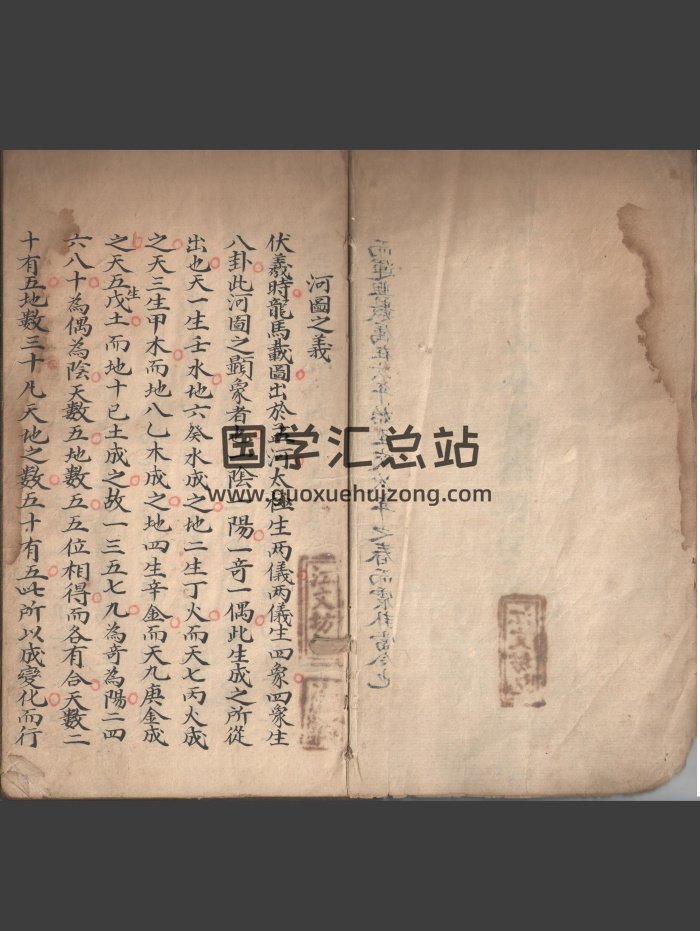 河圖之義
伏羲時龍馬載圖出於孟河太極生两儀两儀生四象四象生
八卦此河圖之顯象者也一陰一陽一奇一偶此生成之所從
出也天一生壬水地六癸水成之地二生丁火而天七丙火成
之天三生甲木而地八乙木成之地四生辛金而天九庚金成
之天五生戊土而地十已土成之故一三五七九為奇為陽二四
六八十為偶為陰天數五地數五五位相得而各有合天數二
十有五地數三十凡天地之數五十有五此所以成變化而行
江文坊
国学汇总站
www.guoxuehuizong.com